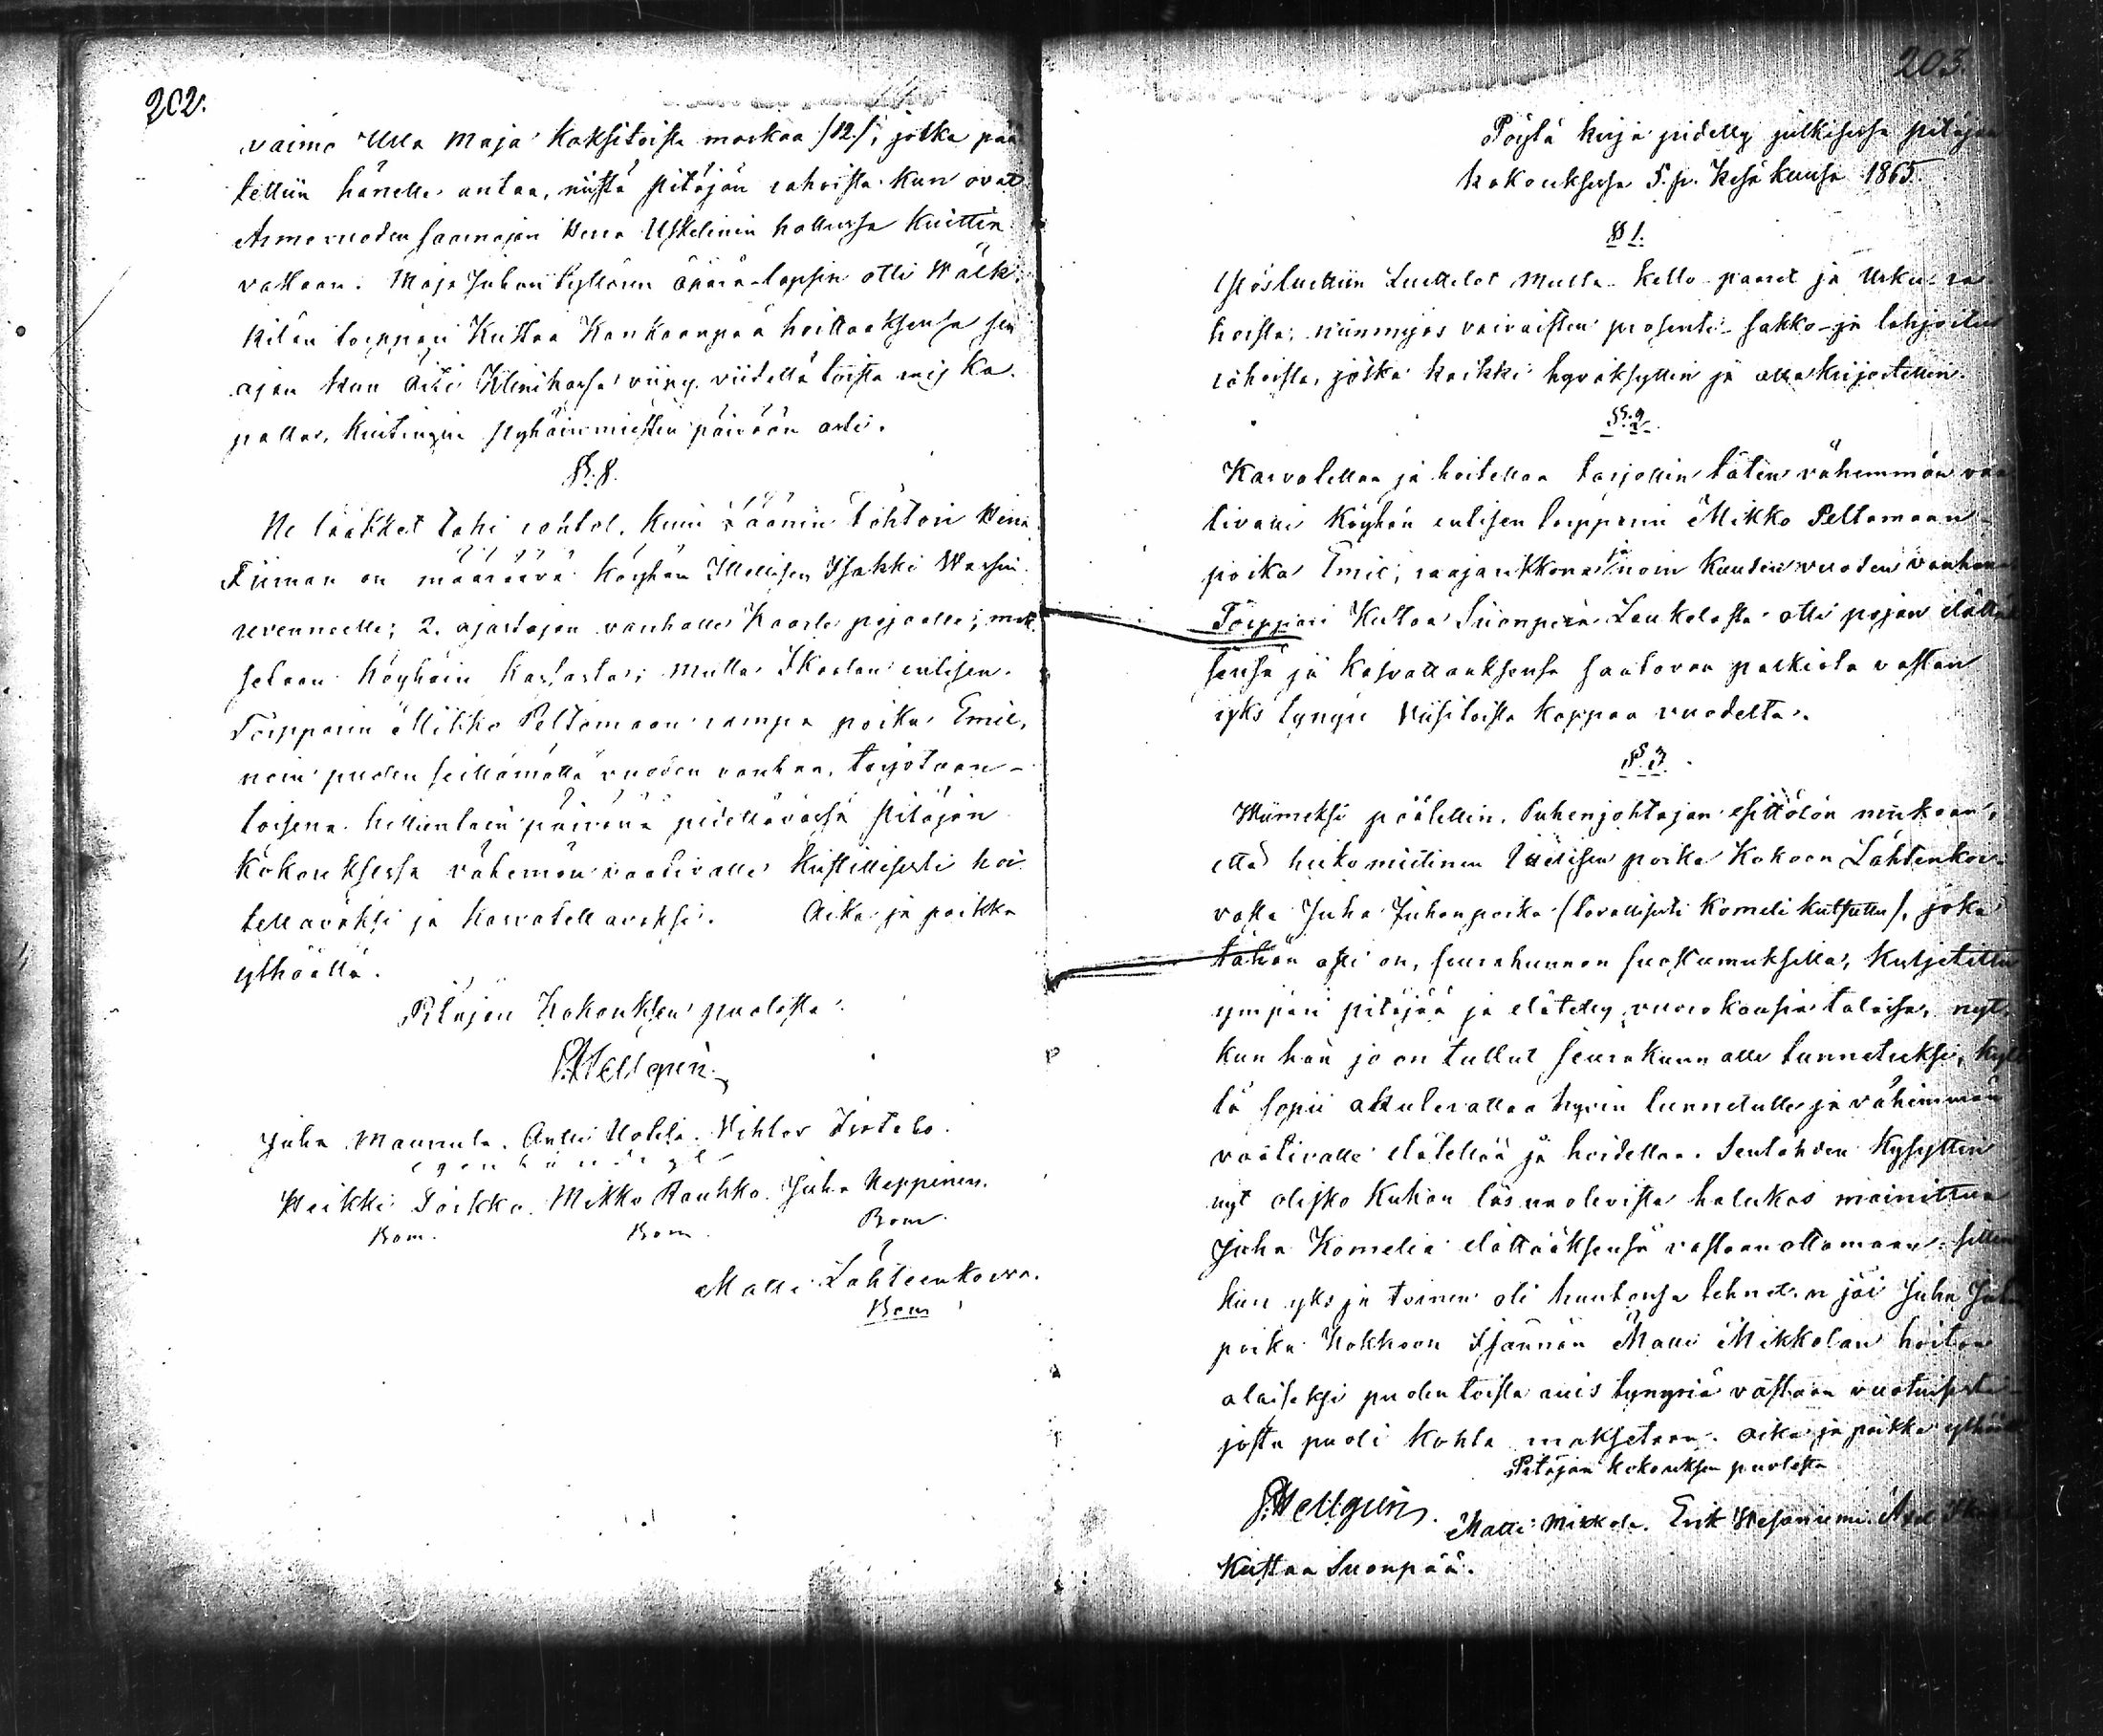 202.
vaimo Ulla Maja kaksitoista markaa /12./; jotka pää
tettiin hänelle antaa, niistä pitäjän rahoista kun ovat
Armovuoden saarnajan Herra Uskelinin hallussa kuittin
vastaan. Maja Juhani Kyllösen äpärä-lapsen otti Wälk
kilän torppari Kustaa Kankaanpää hoittaaksensa sen
ajan kun äiti Klinikassa viipy, viidellä toista ruis ka-
palla, kuitingin Pyhäinmiesten päivään asti.
§. 8.
Ne lääkket tahi rohdot, kuin Läänin tohtori Herra
Fiiman on määräävä köyhän Itsellisen Isakki Warsin
urenneelle; 2. ajastajan vanhalle Kaarle pojalle; mak
setaan köyhäin kassasta; mutta Ikaalan entisen
Torpparin Mikko Peltomaan rampa poika Emil,
noin puolen seittämättä vuoden vanhaa, tarjotaan
toisena helluntain päivänä pidettävässä pitäjän
kokouksessa vähemän vaativalle kristillisesti hoi
tettavaksi ja kasvatettavaksi. Aika ja paikka
ylhäällä.
Pitäjän Kokouksen puolesta:
Hellgren
Juha Mannula. Antti Uotila. Wihtor Isotalo.
egenhändigt
Heikki Soikka. Mikko Rauhko. Juha Heppinen.
Bom. Bom. Bom.
Matti Lähteenkorva.
Bom
203.
Pöytä kirja pidetty julkisessa pitäjän
kokouksessa 5. p. Kesä kuussa 1865.
§ 1.
Ylösluettiin Luettelot multa- kello- paari ja Urku-ra
hoista; niinmyös vaivaisten prosentti- sakko- ja lahjoitus
rahoista, jotka kaikki hyväksyttiin ja alla kirjoitettiin.
§. 2.
Kasvatettaa ja hoitettaa tarjottiin täten vähemmän vaa
tivalle köyhän entisen torpparin Mikko Peltomaan
poika Emil; raajarikkona ja noin kuuden vuoden vanhana
Torppari Kustaa Suonpää Laukolasta otti pojan elättää
sensa ja kasvattaaksensa saatavaa palkiota vastan
yks tynyri viisitoista kappaa vuodelta.
§. 3.
Wiimeksi päätettiin, Puhenjohtajan esittölön mukaan,
että heikomielinen Itsellisen poika Kokoon Lähtenkor
valta Juha Juhanpoika (tavallisesti Komeli kutsuttu), joka
tähän asti on, seurakunnan suostumuksella, kuljetettu
ympäri pitäjää ja elätetty vuorokausia taloissa, nyt,
kun hän jo on tullut seurakunnalle tunnetuksi, kyl
lä sopii akkulevallaa hyvin tunnetulle ja vähimmän
vaativalle elätettää ja hoidettaa. Sentähden kysyttiin
nyt olisko kukan läsnäolevista halukas mainittua
Juha Komelia elättääksensä vastaan ottamaan; sitten
kuin yks ja toinen oli tuntonsa tehnet. n jäi Juha Juhan
poika Kokkoon Isännän Matti Mikkolan hoiton
alaiseksi puolen toista ruis tynyriä vastaan vuotuisesta
josta puoli kohta maksetaan. Aika ja paikka ylhäällä
Pitäjän kokouksen puolesta
Hellgren. Matti Mikkola. Erik Wesaniemi. Axel
Kustaa Suonpää.